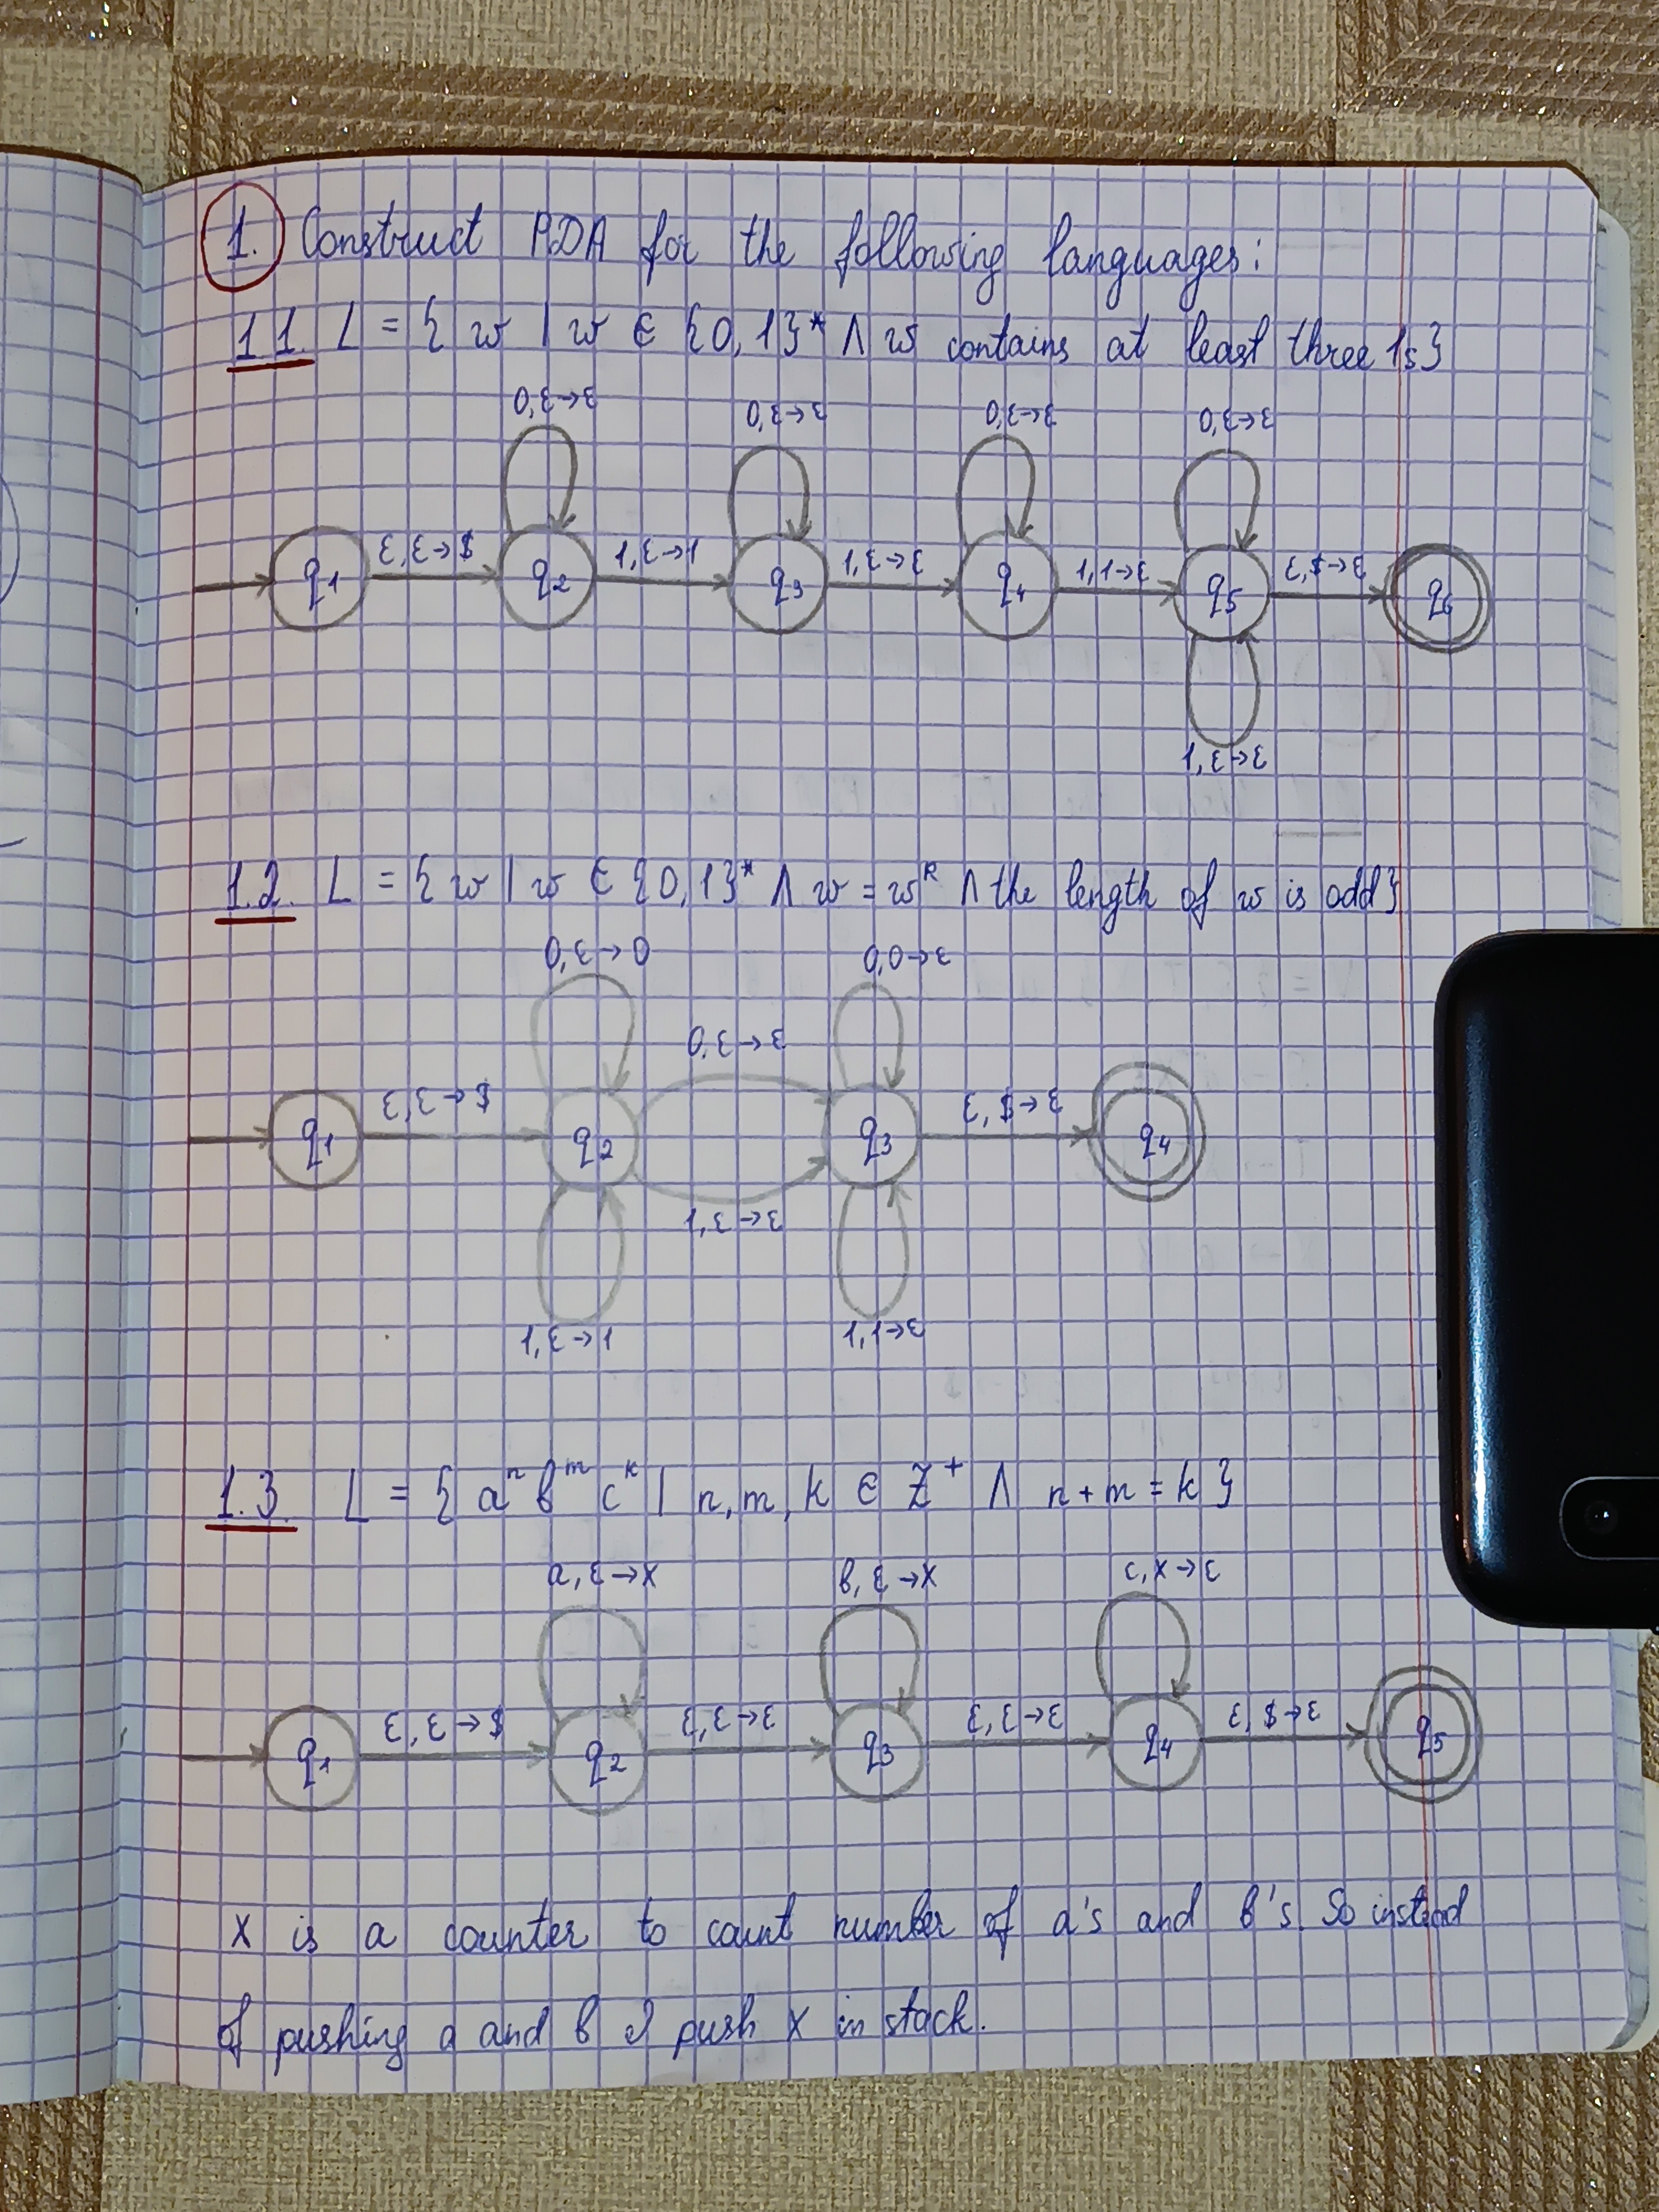 1. Construct PDA for the following languages:
1.1. L = { w | w ∈ {0,1}* ∧ w contains at least three 1s}
0,ε→ε 0,ε→ε 0,ε→ε 0,ε→ε
q1 ε,ε→$ q2 1,ε→1 q3 1,ε→ε q4 1,1→ε q5 ε,$→ε q6
1,ε→ε
1.2. L = { w | w ∈ {0,1}* ∧ w = wᴿ ∧ the length of w is odd}
0,ε→0 0,0→ε
0,ε→ε
q1 ε,ε→$ q2 q3 ε,$→ε q4
1,ε→ε
1,ε→1 1,1→ε
1.3 L = { aⁿ bᵐ cᵏ | n, m, k ∈ Z⁺ ∧ n + m = k }
a,ε→x b,ε→x c,x→ε
q1 ε,ε→$ q2 ε,ε→ε q3 ε,ε→ε q4 ε,$→ε q5
x is a counter to count number of a's and b's. So instead
of pushing a and b I push x in stack.